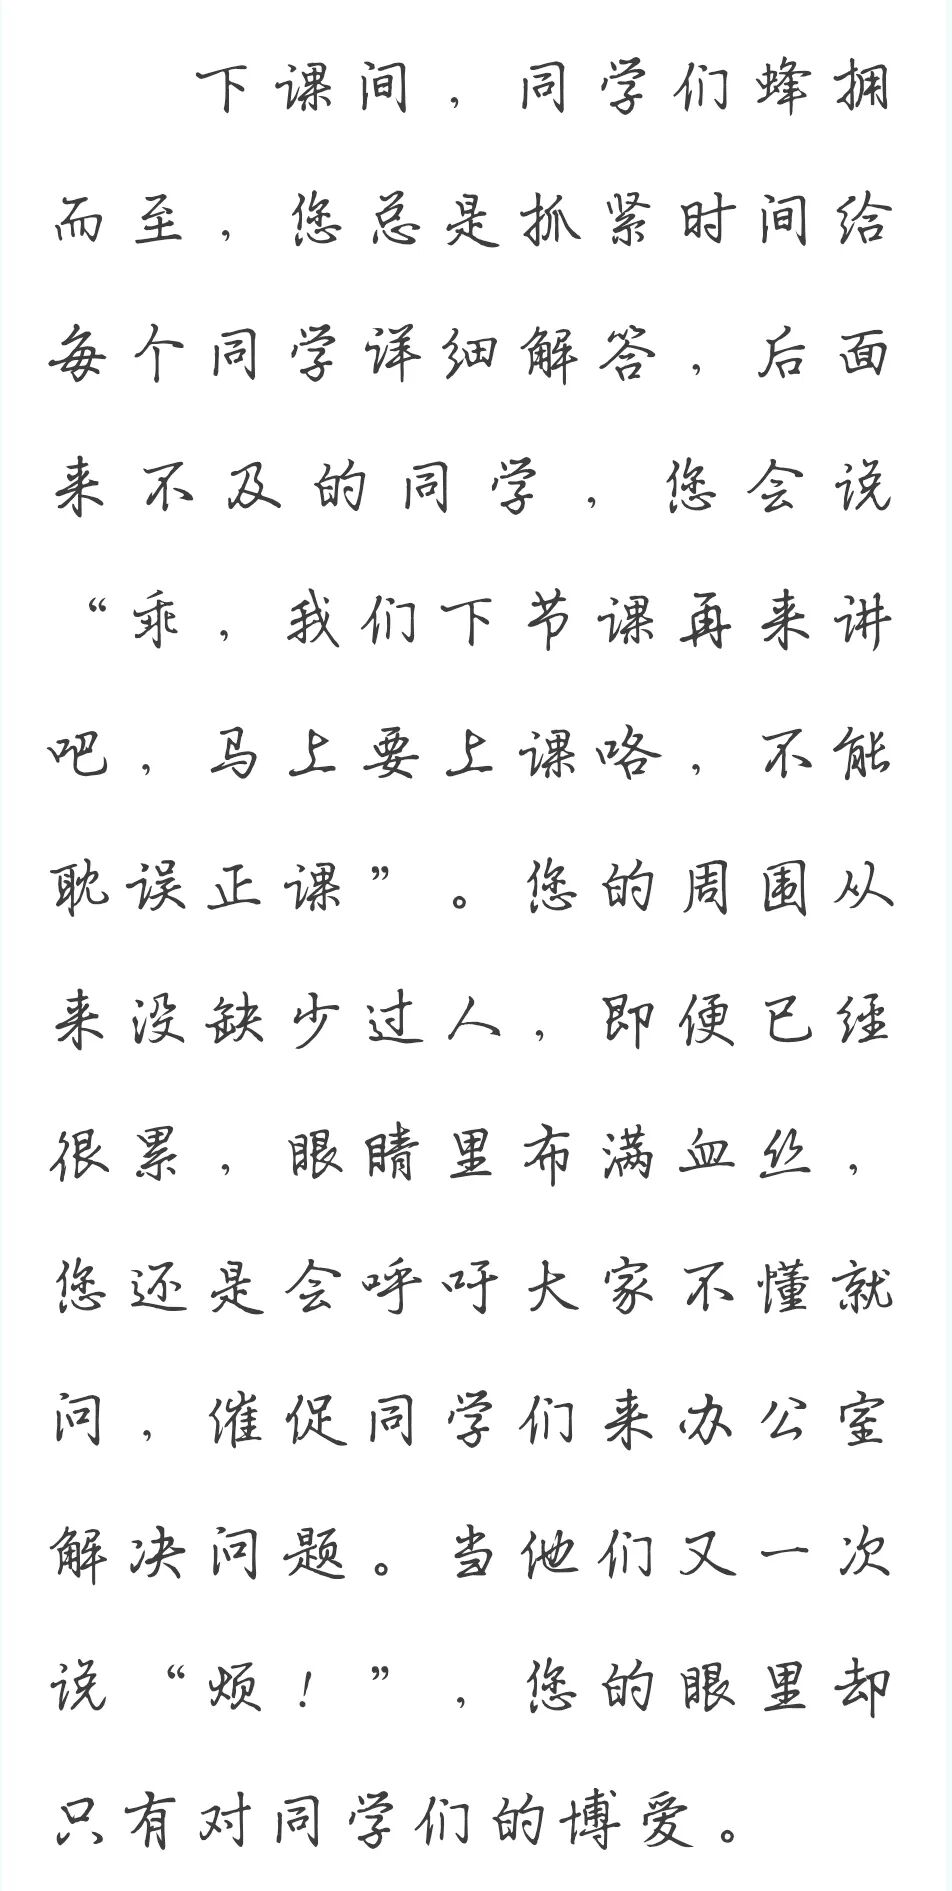 下课间，同学们蜂拥
而至，您总是抓紧时间给
每个同学详细解答，后面
来不及的同学，您会说
“乖，我们下节课再来讲
吧，马上要上课咯，不能
耽误正课”。您的周围从
来没缺少过人，即便已经
很累，眼睛里布满血丝，
您还是会呼吁大家不懂就
问，催促同学们来办公室
解决问题。当他们又一次
说“烦！”，您的眼里却
只有对同学们的博爱。